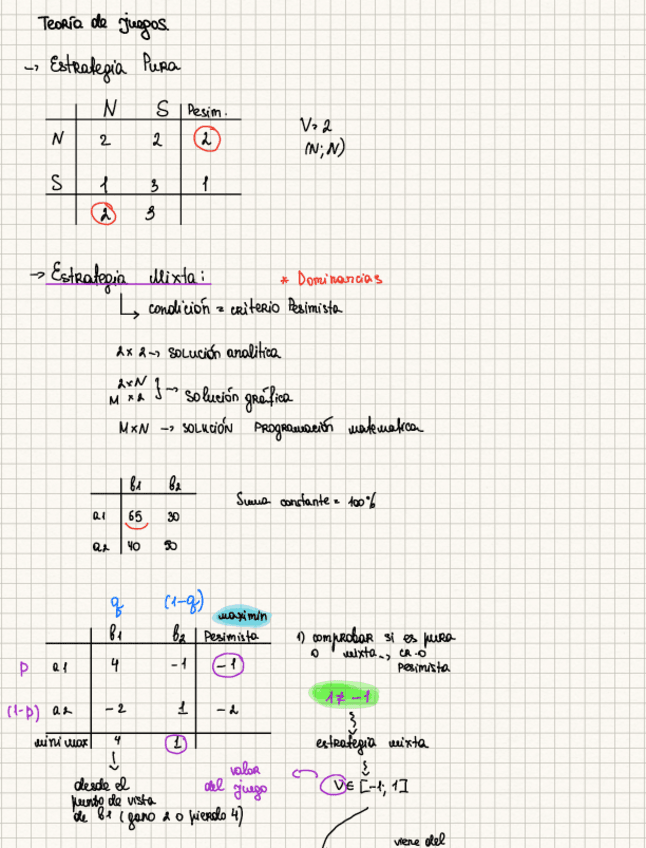 Teoría de juegos.
→ Estrategia Pura
N S Pesim.
N 2 2 2
S 1 3 1
2 3
V= 2
(N; N)
→ Estrategia Mixta: * Dominancias
↳ condición = criterio Pesimista
2x2 → solución analítica
2xN
M x2 } → solución gráfica
MxN → solución Programación matematica
b1 b2
a1 65 30
a2 40 50
Suma constante = 100%
q (1-q)
maximin
b1 b2 Pesimista
p a1 4 -1 -1
(1-p) a2 -2 1 -2
minimax 4 1
1) comprobar si es pura
o mixta → cr.o
Pesimista
1 ≠ -1
estrategia mixta
V ∈ [-1; 1]
valor
del juego
desde el
punto de vista
de b1 (gano 2 o pierdo 4)
viene del